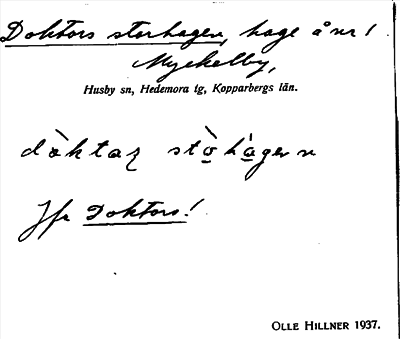 Doktors storhagen, hage å nr 1
Myckelby,
Husby sn, Hedemora tg, Kopparbergs län.
dòktaɼ stò̱ há̱gen
Jfr Doktors!
OLLE HILLNER 1937.